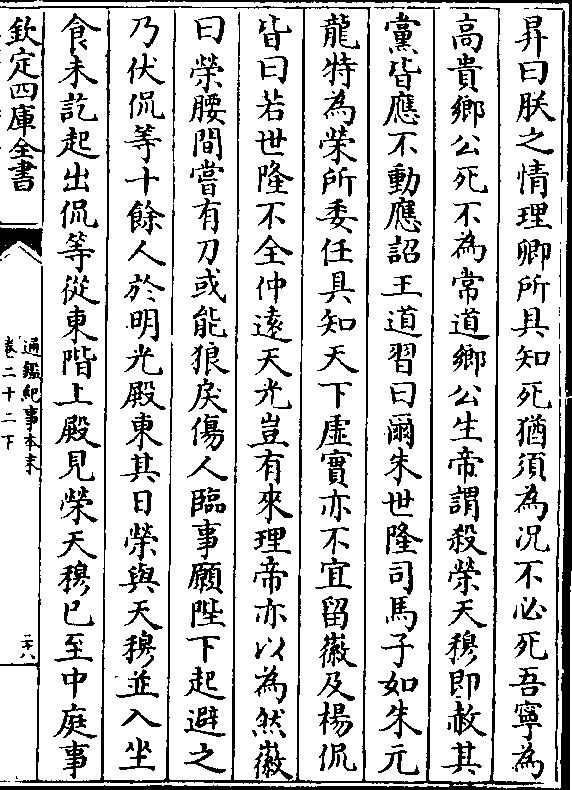 昇曰朕之情理卿所具知死猶須為况不必死吾寧為
髙貴鄉公死不為常道鄉公生帝謂殺榮天穆即赦其
黨皆應不動應詔王道習曰爾朱世隆司馬子如朱元
龍特為榮所委任具知天下虚實亦不宜留徽及楊侃
皆曰若世隆不全仲逺天光豈有來理帝亦以為然徽
曰榮腰間嘗有刀或能狼戾傷人臨事願陛下起避之
乃伏侃等十餘人於明光殿東其日榮與天穆並入坐
食未訖起出侃等從東階上殿見榮天穆已至中庭事
欽定四庫全書
通鑑紀事本末
卷二十二下
二十八